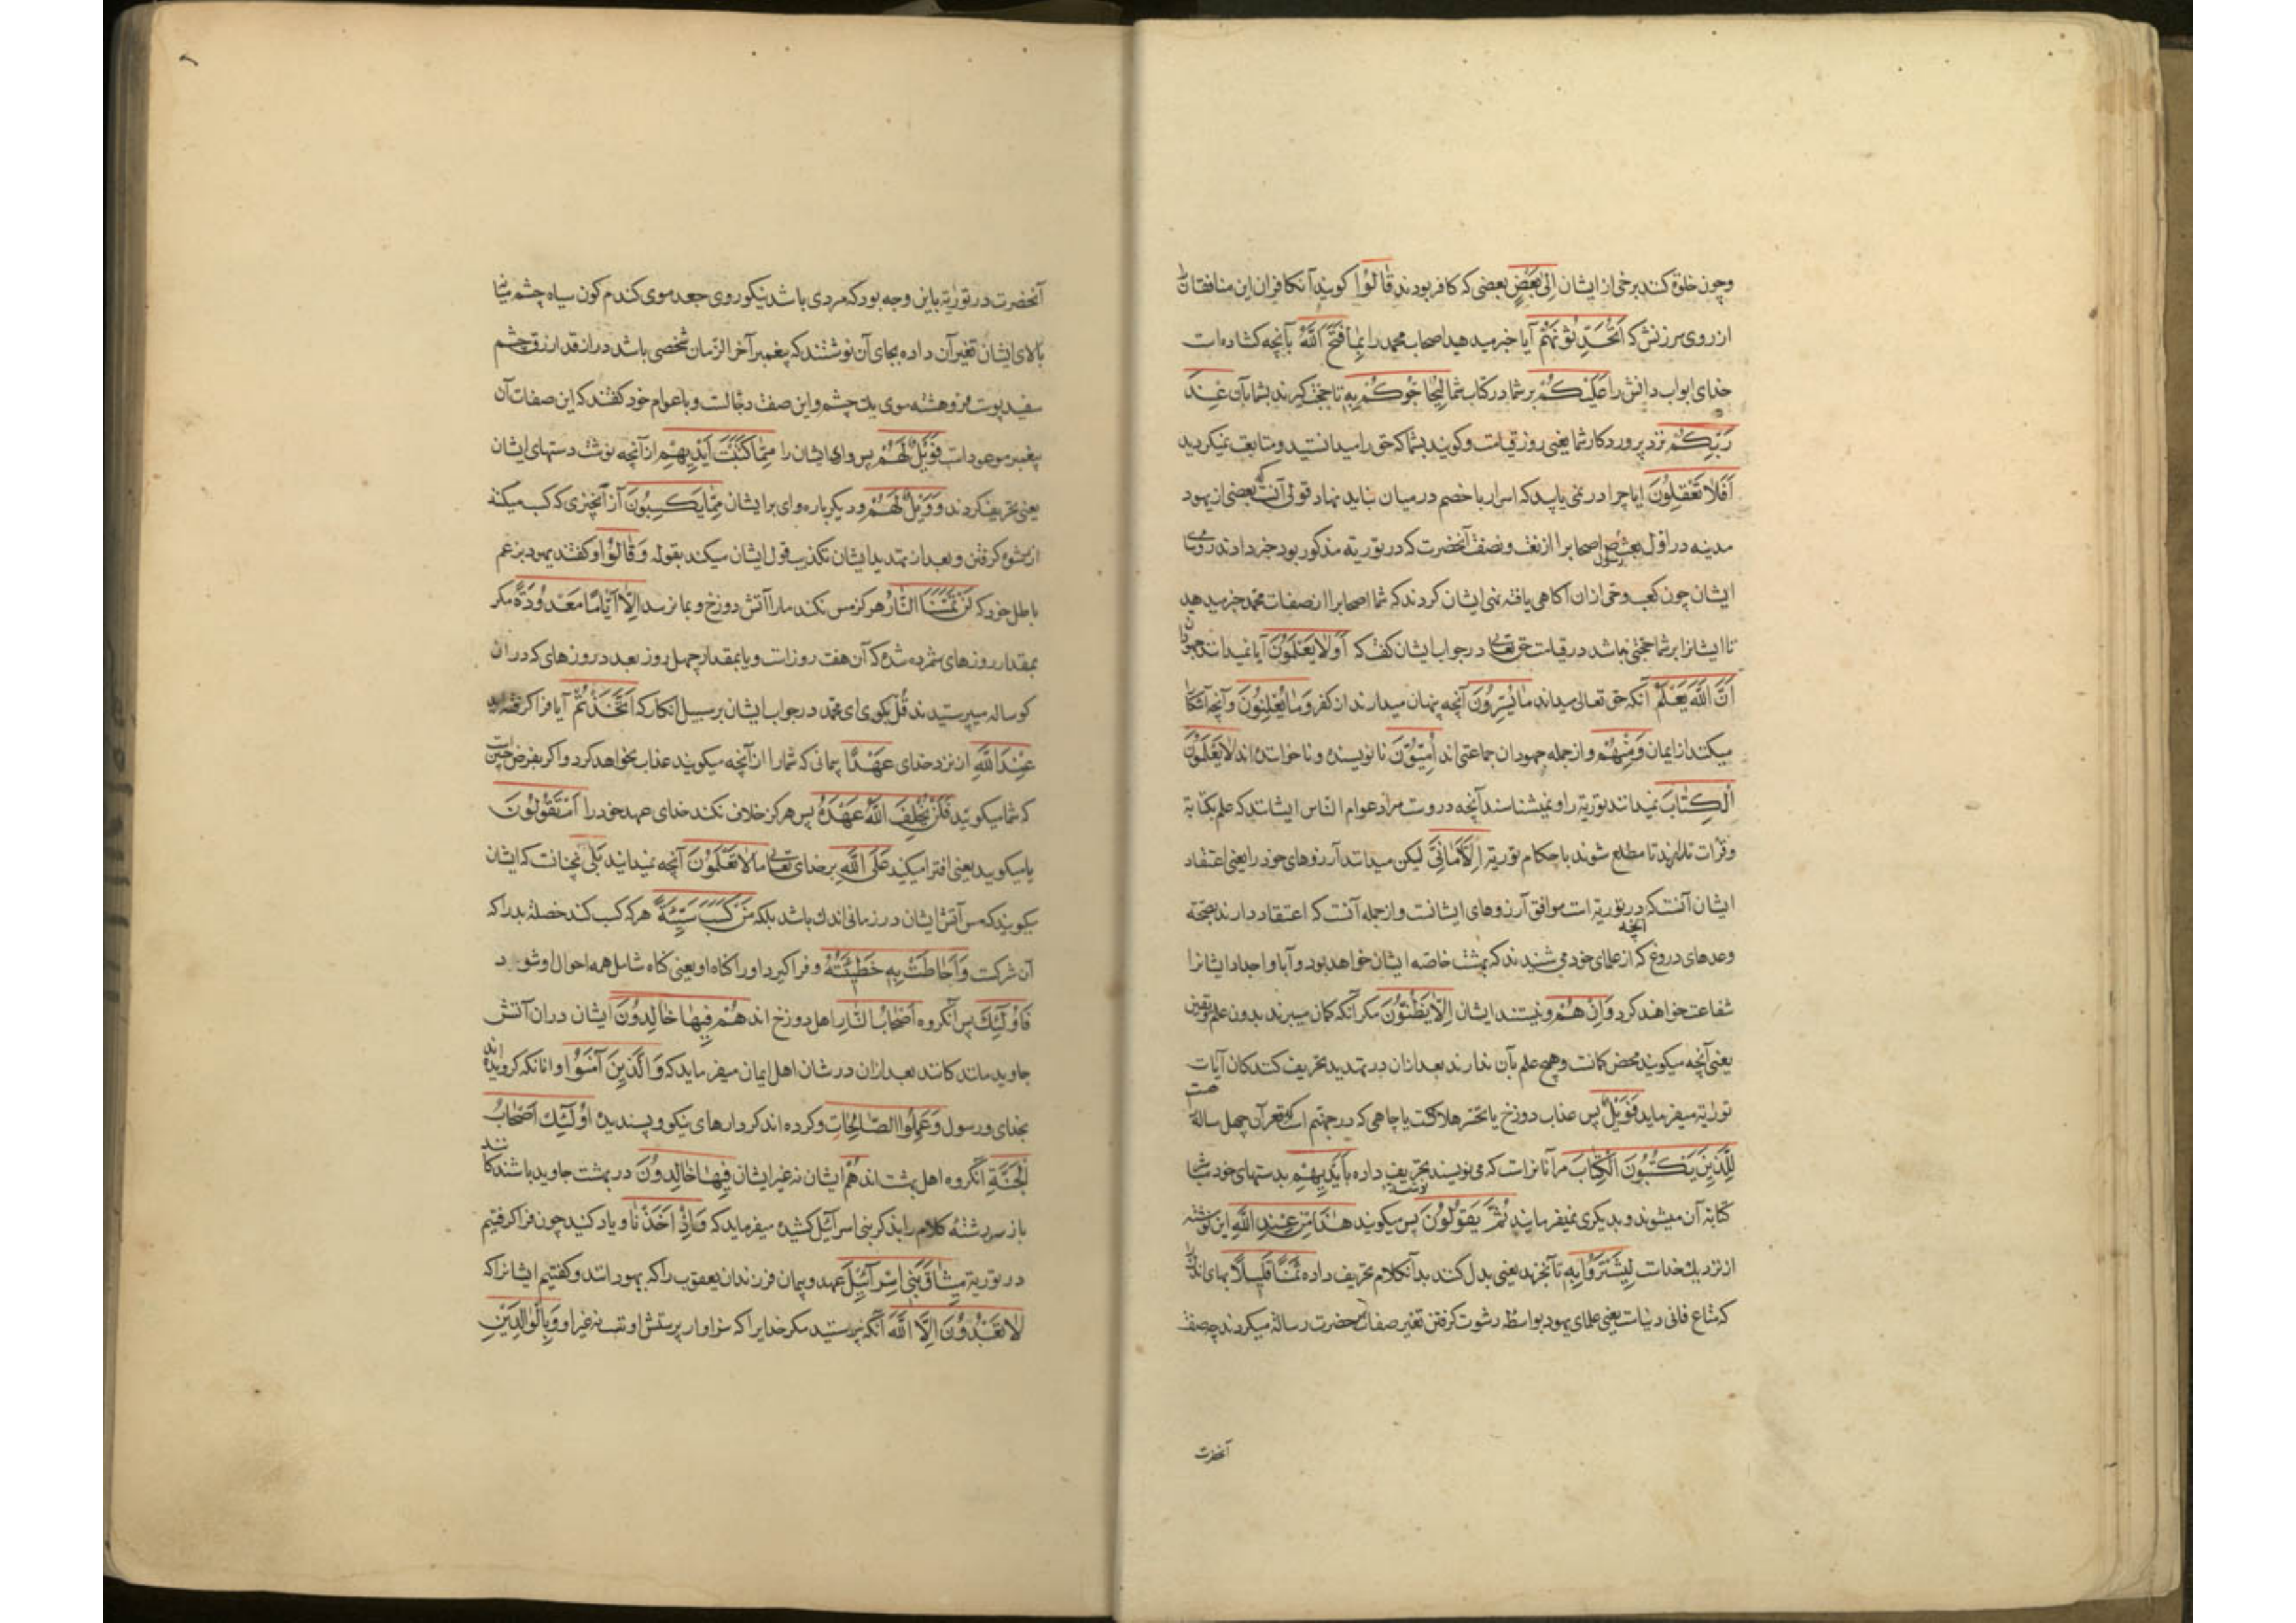 وچون خلوة کنند برخی از ایشان اِلیٰ بَعْضٍ بعضی که کافر بودند قٰالُوْا کویند آنکافران این منافقانرا
از روی سرزنش که اَتُحَدِّثُوْنَهُمْ آیا خبر میدهید اصحاب محمد را بِمٰا فَتَحَ اللّٰهُ بآنچه کشاده است
خدای ابواب دانش را عَلَیْکُمْ بر شما در کتاب شما لِیُحٰاجُّوکُمْ بِهٖ تا حجت کیرند بشما بآن عِنْدَ
رَبِّکُمْ نزد پروردکار شما یعنی روز قیامت وکویند بشما که حق را میدانستید ومتابعت نمیکردید
اَفَلٰا تَعْقِلُوْنَ ایا چرا در نمی یابید که اسرار با خصم در میان نباید نهاد قولی آنست که بعضی از یهود
مدینه در اول بعثت رسول ص اصحابرا از نعت وصفت آنحضرت که در توریة مذکور بود خبر دادند
ایشان چون کعب وحی ازان آکاهی یافته نهی ایشان کردند که شما اصحابرا از صفات محمد خبر میدهید
تا ایشانرا بر شما حجتی باشد در قیامت حق تعالی در جواب ایشان کفت که اَوَلٰا یَعْلَمُوْنَ آیا نمیدانند
اَنَّ اللّٰهَ یَعْلَمُ آنکه حق تعالی میداند مٰا یُسِرُّونَ آنچه پنهان میدارند از کفر وَمٰا یُعْلِنُوْنَ وآنچه آشکارا
میکنند از ایمان وَمِنْهُمْ واز جمله جهودان جماعتی اند اُمِّیُّوْنَ نا نویسنده ونا خواننده اند لٰا یَعْلَمُوْنَ
الْکِتٰابَ نمیدانند توریة را ونمیشناسند آنچه دروست مراد عوام الناس ایشانند که علم بکتابة
وقرات ندارند تا مطلع شوند باحکام توریة اِلّٰا اَمٰانِیَّ لیکن میدانند آرزوهای خود را یعنی اعتقاد
ایشان آنست که آنچه در توریة است موافق آرزوهای ایشانست واز جمله آنست که اعتقاد دارند بصحة
وعدهای دروغ که از علمای خود می شنیدند که بهشت خاصه ایشان خواهد بود وآبا واجداد ایشانرا
شفاعت خواهند کرد وَاِنْ هُمْ ونیستند ایشان اِلّٰا یَظُنُّوْنَ مکر آنکه کمان میبرند بدون علم ویقین
یعنی آنچه میکویند محض کمانست وهیچ علم بآن ندارند بعد ازان در تهدید تحریف کنندکان آیات
توریة میفرماید فَوَیْلٌ پس عذاب دوزخ یا تحسر هلاکت یا چاهی که در جهنم است که قعر آن چهل ساله
لِلَّذِیْنَ یَکْتُبُوْنَ الْکِتٰابَ مر آنانراست که می نویسند تحریف داده بِاَیْدِیهِمْ بدستهای خود
کتابة آن میشوند وبدیکری نمیفرمایند ثُمَّ یَقُوْلُوْنَ پس میکویند هٰذٰا مِنْ عِنْدِ اللّٰهِ این نوشته
از نزدیك خداست لِیَشْتَرُوْا بِهٖ تا بخرند یعنی بدل کنند بدآنکلام تحریف داده ثَمَنًا قَلِیْلًا بهای اندك
که متاع فانی دنیاست یعنی علمای یهود بواسطه رشوت کرفتن تغیر صفات حضرت رسالة میکردند چه صفت
آنحضرت
آنحضرت در توریة باین وجه بود که مردی باشد نیکوروی جعد موی کندم کون سیاه چشم میانه
بالا ایشان تغیر آن داده بجای آن نوشتند که پیغمبر آخر الزمان شخصی باشد دراز قد ازرق چشم
سفید پوست فروهشته موی وباعوام خود کفتند که این صفات آن
پیغمبر موعودست فَوَیْلٌ لَهُمْ پس وای ایشان را مِمّٰا کَتَبَتْ اَیْدِیهِمْ از آنچه نوشت دستهای ایشان
یعنی تحریف کردند وَوَیْلٌ لَهُمْ ودیکر باره وای بر ایشان مِمّٰا یَکْسِبُوْنَ از آنچیزی که کسب میکنند
از رشوه کرفتن وبعد از تهدید ایشان تکذیب قول ایشان میکند بقوله وَقٰالُوْا وکفتند یهود بزعم
باطل خود که لَنْ تَمَسَّنَا النّٰارُ هرکز مس نکند ما را آتش دوزخ وبما نرسد اِلّٰا اَیّٰامًا مَعْدُوْدَةً مکر
بمقدار روزهای شمرده شده که آن هفت روزست ویا بمقدار چهل روز بعدد روزهای که دران
کوساله میپرستیدند قُلْ بکوی ای محمد در جواب ایشان بر سبیل انکار که اَتَّخَذْتُمْ آیا فرا کرفته اید
عِنْدَ اللّٰهِ از نزد خدای عَهْدًا پیمانی که شما را از آنچه میکویید عذاب نخواهد کرد واکر بفرض چنین است
که شما میکویید فَلَنْ یُخْلِفَ اللّٰهُ عَهْدَهُ پس هرکز خلاف نکند خدای عهد خود را اَمْ تَقُوْلُوْنَ
یا میکویید یعنی افترا میکنید عَلَی اللّٰهِ بر خدای تعالی مٰا لٰا تَعْلَمُوْنَ آنچه نمیدانید بَلیٰ نچنانست که ایشان
میکویند که مس آتش ایشان در زمانی اندك باشد بلکه مَنْ کَسَبَ سَیِّئَةً هر که کسب کند خصلة بد را که
آن شرکست وَاَحٰاطَتْ بِهٖ خَطِیْئَتُهُ وفرا کیرد او را کناه او یعنی کناه شامل همه احوال او شود
فَاُولٰئِكَ پس آنکروه اَصْحٰابُ النّٰارِ اهل دوزخ اند هُمْ فِیهٰا خٰالِدُوْنَ ایشان دران آتش
جاوید مانندکانند بعد ازان در شان اهل ایمان میفرماید که وَالَّذِیْنَ آمَنُوْا وانانکه کرویده اند
بخدای ورسول وَعَمِلُوا الصّٰالِحٰاتِ وکرده اند کردارهای نیکو وپسندیده اُولٰئِكَ اَصْحٰابُ
الْجَنَّةِ انکروه اهل بهشت اند هُمْ ایشان نه غیر ایشان فِیهٰا خٰالِدُوْنَ در بهشت جاوید باشندکانند
باز سر رشته کلام را بذکر بنی اسرائیل کشیده میفرماید که وَاِذْ اَخَذْنٰا ویاد کنید چون فرا کرفتیم
در توریة مِیْثٰاقَ بَنِیْ اِسْرٰائِیْلَ عهد وپیمان فرزندان یعقوب را که یهودند وکفتیم ایشانرا که
لٰا تَعْبُدُوْنَ اِلَّا اللّٰهَ آنکه نپرستید مکر خدایرا که سزاوار پرستش اوست نه غیر او وَبِالْوٰالِدَیْنِ